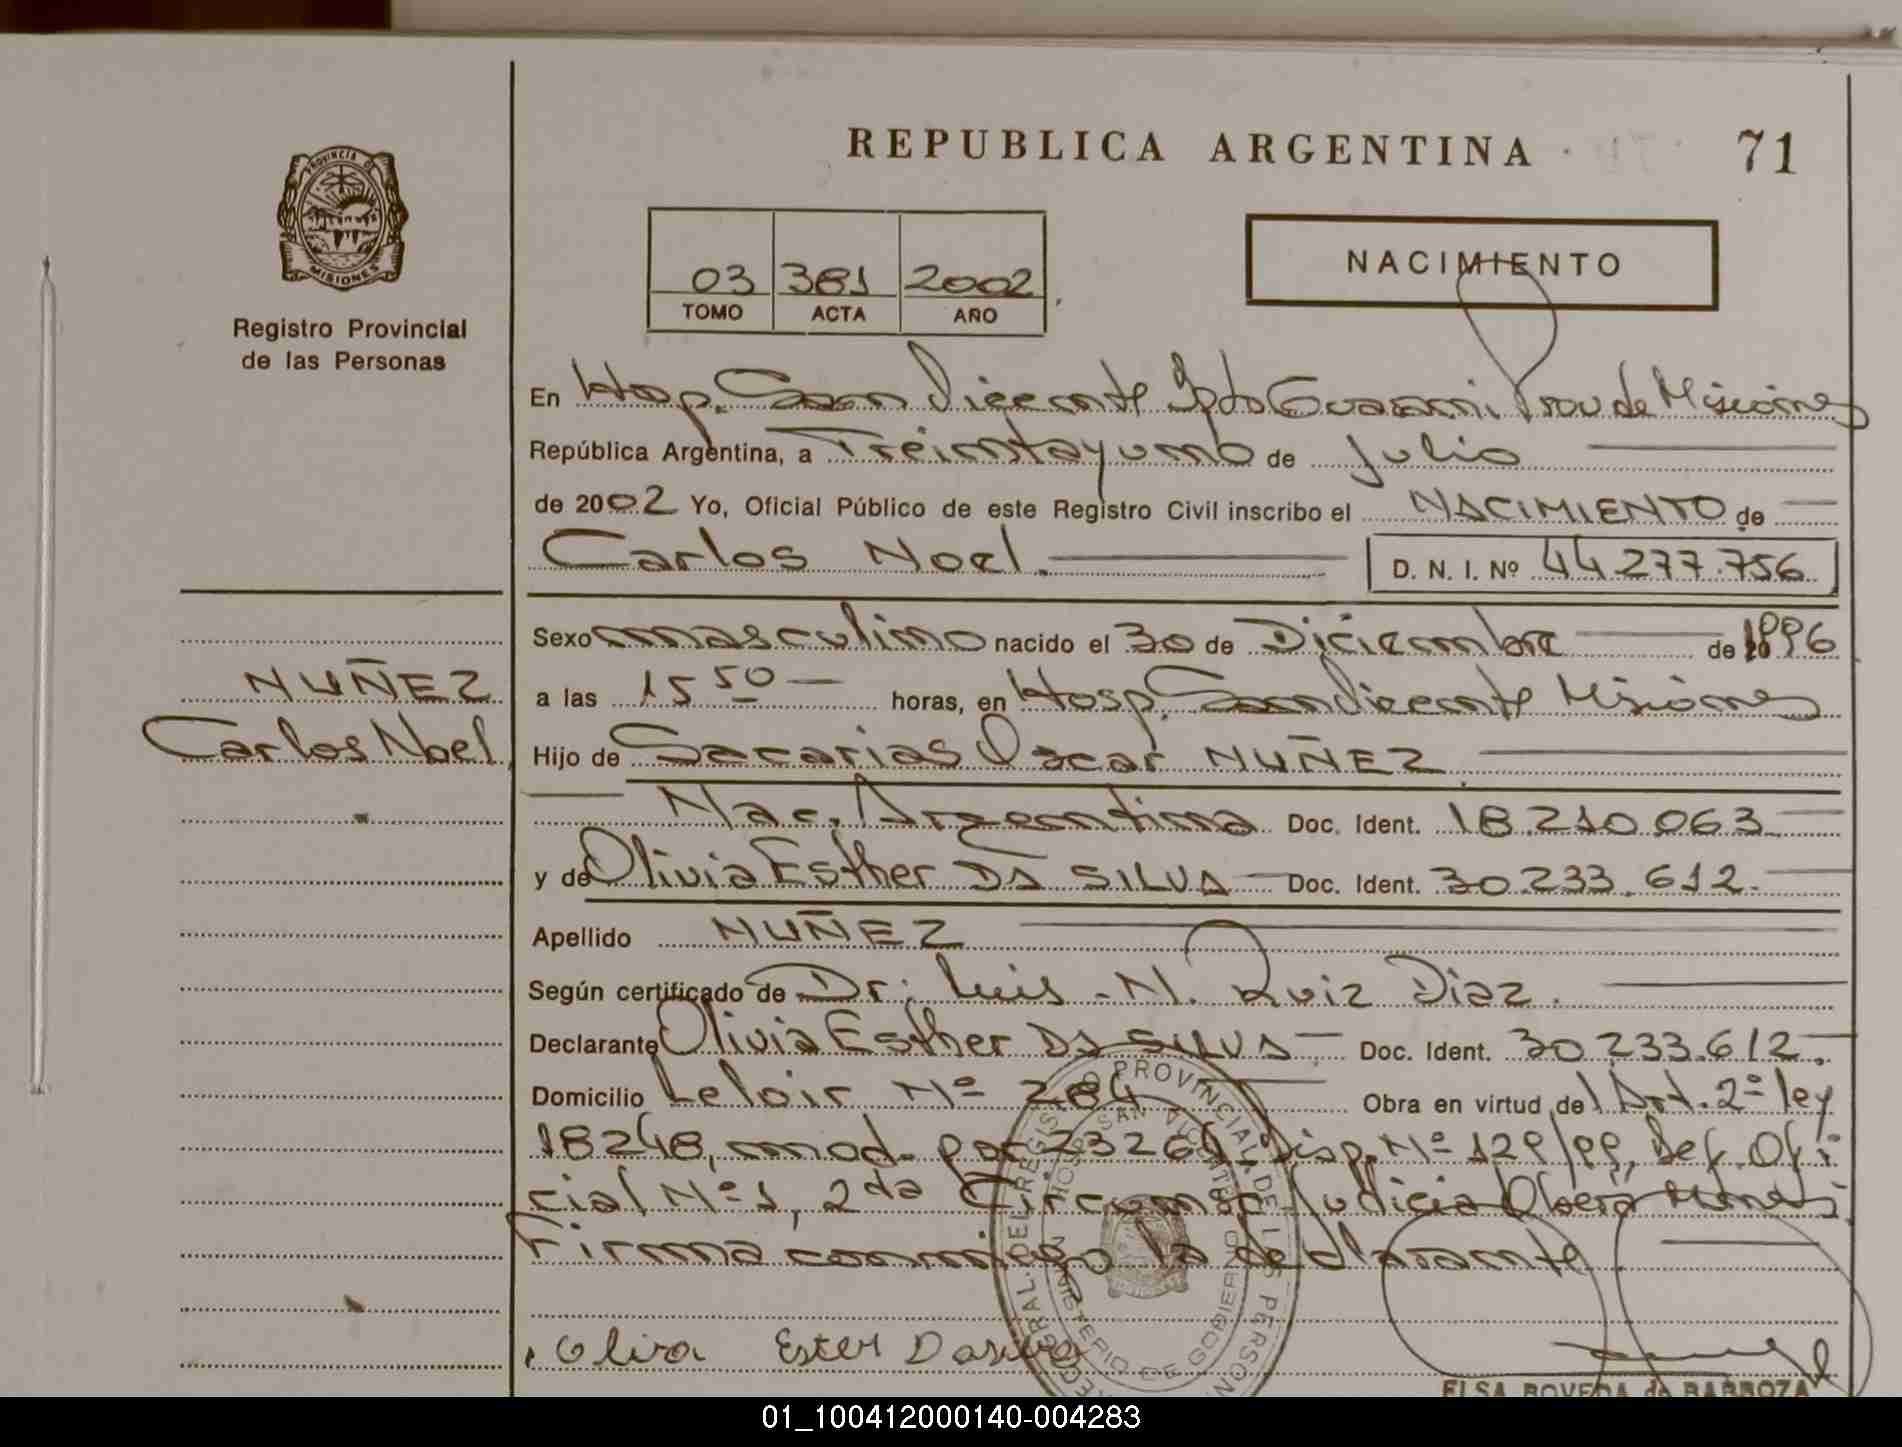 REPUBLICA ARGENTINA
71
PROVINCIA DE
MISIONES
Registro Provincial
de las Personas
03 381 2002
TOMO ACTA AÑO
NACIMIENTO
En Hosp. San Vicente Dpto Guaraní Prov de Misiones
República Argentina, a Treintayuno de Julio
de 2002 Yo, Oficial Público de este Registro Civil inscribo el NACIMIENTO de
Carlos Noel. D. N. I. Nº 44.277.756
Sexo masculino nacido el 30 de Diciembre de 1996
a las 15 50 horas, en Hosp. San Vicente Misiones
Hijo de Sacarias Oscar NUÑEZ
Nac. Argentina Doc. Ident. 18.210.063
y de Olivia Esther DA SILVA Doc. Ident. 30.233.612.
Apellido NUÑEZ
Según certificado de Dr. Luis N. Ruiz Diaz.
Declarante Olivia Esther DA SILVA Doc. Ident. 30.233.612.
Domicilio Leloir Nº 284 Obra en virtud de Art. 2º ley
18248, mod. por 23264 Disp. Nº 129/99, Def. Ofi
cial Nº 1, 2da Circunsc. Judicia Oberá
Firma conmigo la declarante
NUÑEZ
Carlos Noel
Olira Ester Dasilva
REGISTRO PROVINCIAL DE LAS PERSONAS
HOSP. SAN VICENTE
MINISTERIO DE GOBIERNO
ELSA BOVEDA de BARBOZA
01_100412000140-004283